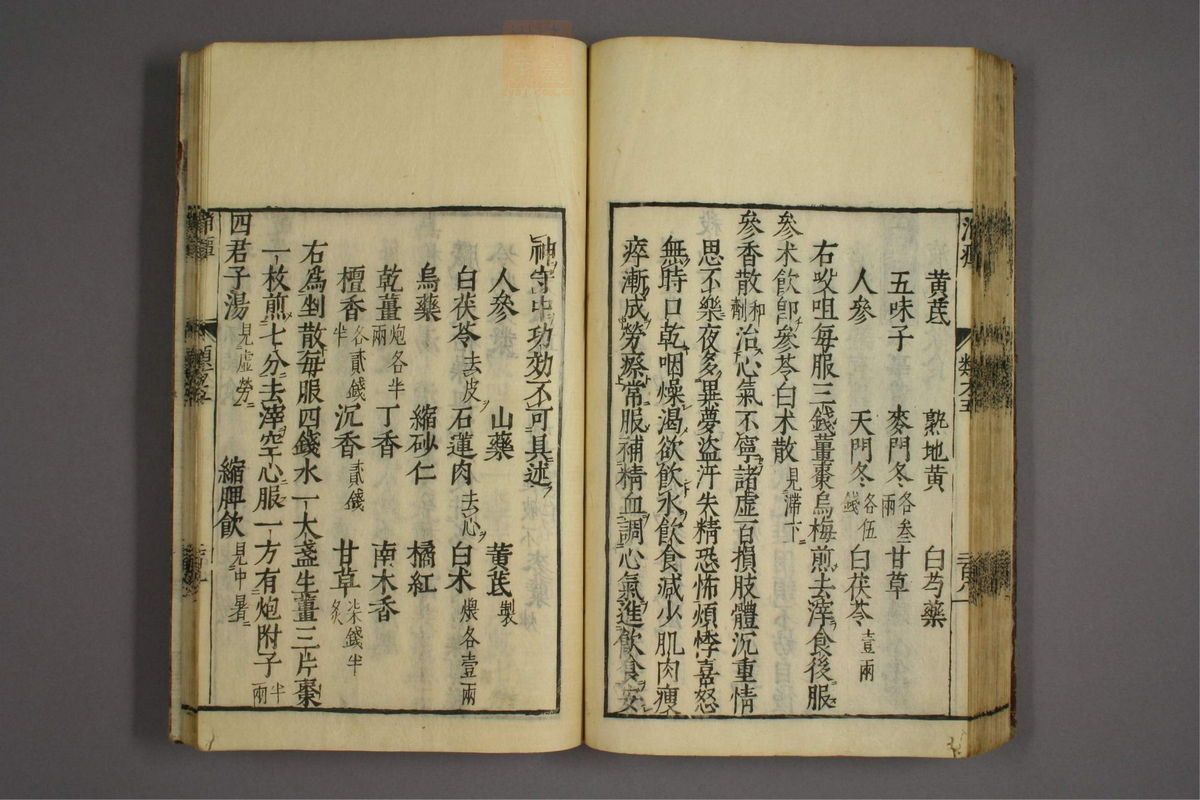 黄茋 熟地黄 白芍藥
五味子 麥門冬各叁兩 甘草
人參 天門冬各伍錢 白茯苓壹兩
右㕮咀每服三錢薑棗烏梅煎去滓食後服
參术飲卽參苓白术散見滯下
參香散和劑治心氣不寧諸虛百損肢體沉重情
思不樂夜多異夢盜汗失精恐怖煩悸喜怒
無時口乾咽燥渴欲飲水飲食減少肌肉瘦
瘁漸成勞瘵常服補精血調心氣進飲食安
神守中功効不可具述
人參 山藥 黄茋製
白茯苓去皮 石蓮肉去心 白术煨各壹兩
烏藥 縮砂仁 橘紅
乾薑炮各半兩 丁香 南木香
檀香各貳錢半 沉香貳錢 甘草炙柒錢半
右爲剉散每服四錢水一大盞生薑三片棗
一枚煎七分去滓空心服一方有炮附子半兩
四君子湯見虛勞 縮脾飲見中暑